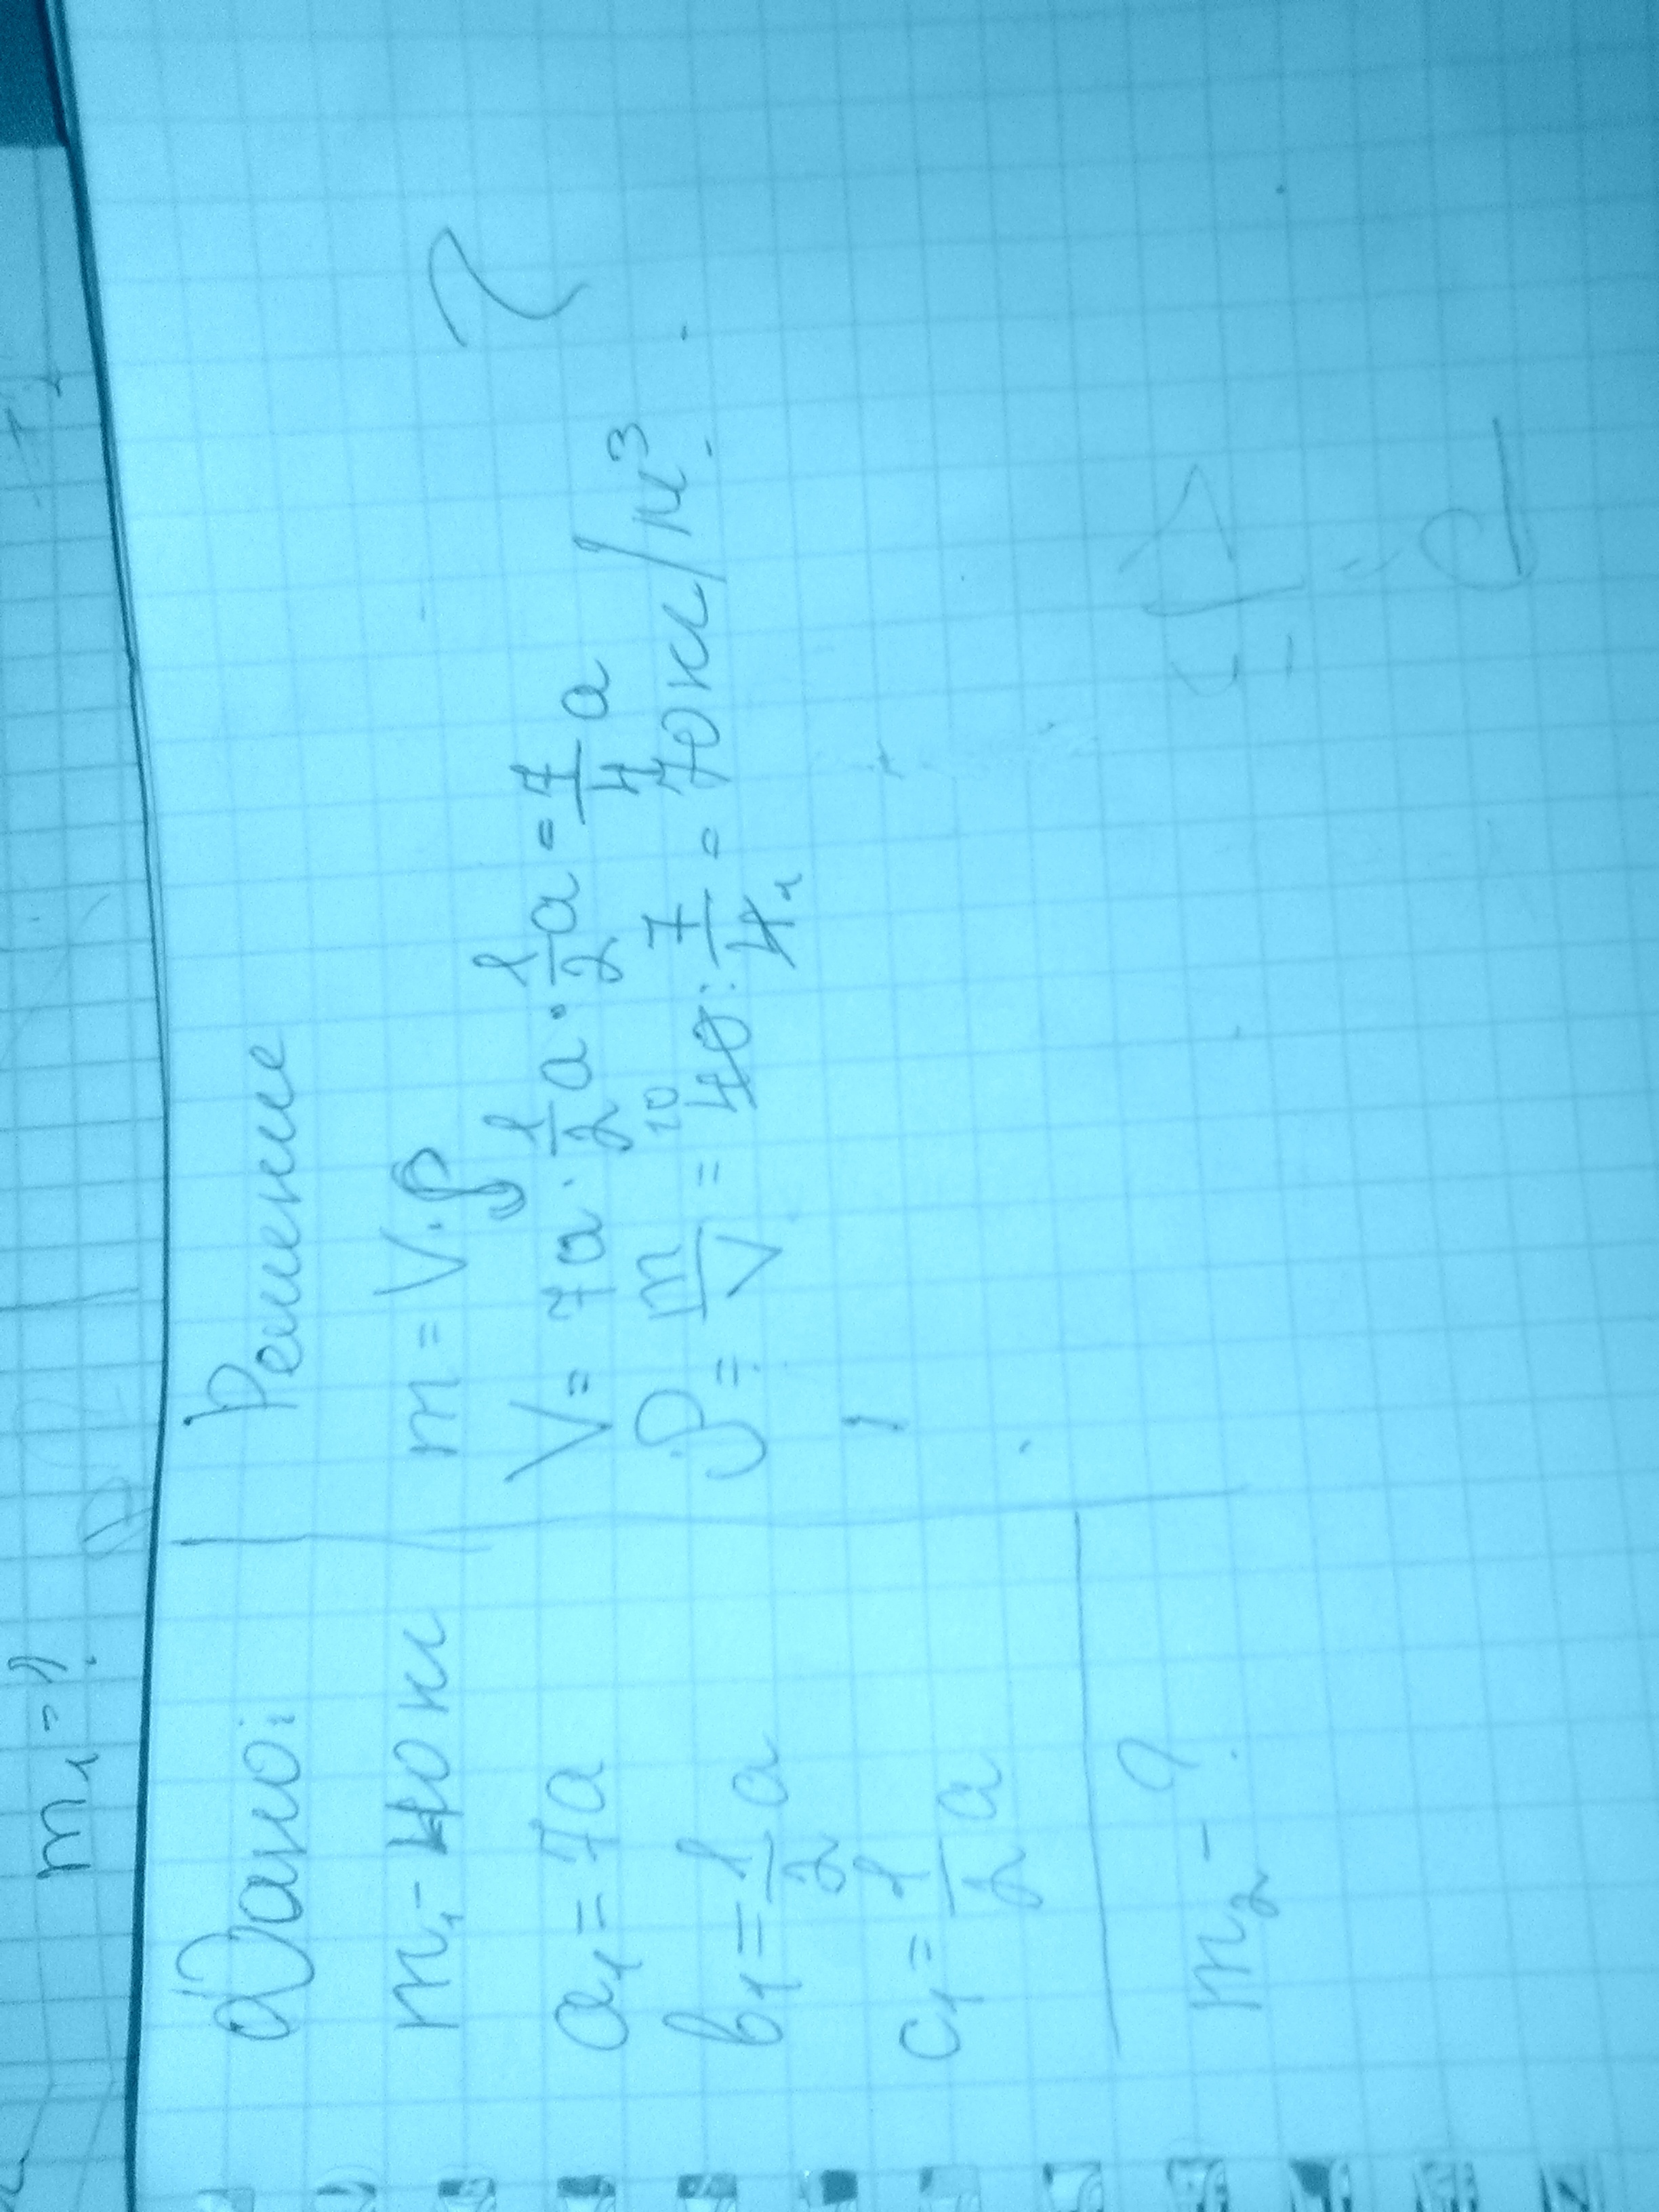 m₁ = ?
Дано:
m₁ - 40 кг
a₁ = 7a
b₁ = 1/2 a
c₁ = 1/2 a
m₂ - ?
Решение
m = V · ρ
V = 7a · 1/2 a · 1/2 a = 7/4 a
ρ = m/V = 40 10 : 7/4 1 = 70 кг/м³